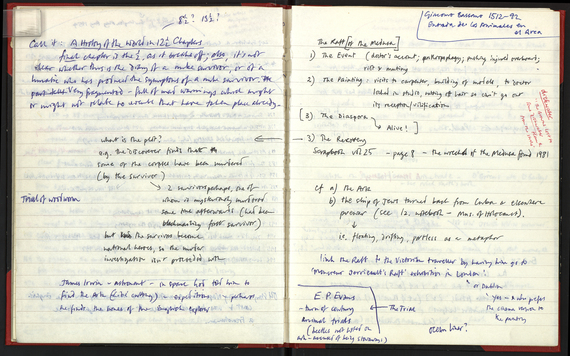 8½? 13½?
Call it: A History of the World in 12½ Chapters
final chapter is the ½, as it breaks off; also, it's not
clear whether this is the diary of a nuke survivor, or of a
lunatic who has produced the symptoms of a nuke survivor. The
fragmented - full of weird warnings which might
or might not relate to events that have taken place already.
what is the plot?
e.g. the discoverer finds that
some of the corpses have been murdered
(by the survivor)
2 survivors perhaps, one of
whom is mysteriously murdered
some time afterwards (had been
blackmailing first survivor)
Trial of woodworm
but the survivors become
national heroes, so the murder
investigation isn't proceeded with
James Irwin - astronaut - in space has told him to
find the Ark (find cutting) - expeditions, - perhaps
he finds the bones of the
Giacomo Bassano 1512-92
Entrada de los Animales en
el Arca
The Raft [of the Medusa]
1) The Event (doctor's account, anthropophagy, pushing injured overboard,
visit & mutiny
2) The Painting: visits to carpenter, building of models, to
locked in studio, cutting of hair so can't go out
its reception/vilification
[3) The Diaspora
Alive!]
3) The Recovery
Scrapbook vol 25 - page 8 - the wreck of the Medusa found 1981
cf a) the Ark
b) the ship of Jews turned back from London & elsewhere
prewar (see notebook - Mus. of Holocaust).
i.e. floating, drifting, portless as a metaphor
link the Raft to the Victorian traveller by having him go to
'Monsieur Jerricault's Raft' exhibition in London?
or Dublin
yes - & she prefers
the cinema version to
the painting
E. P. Evans
- turn of century
Animal trials
(beetles not listed on
Ark - accused of being stowaways)
The Trial
Ocean Liner?